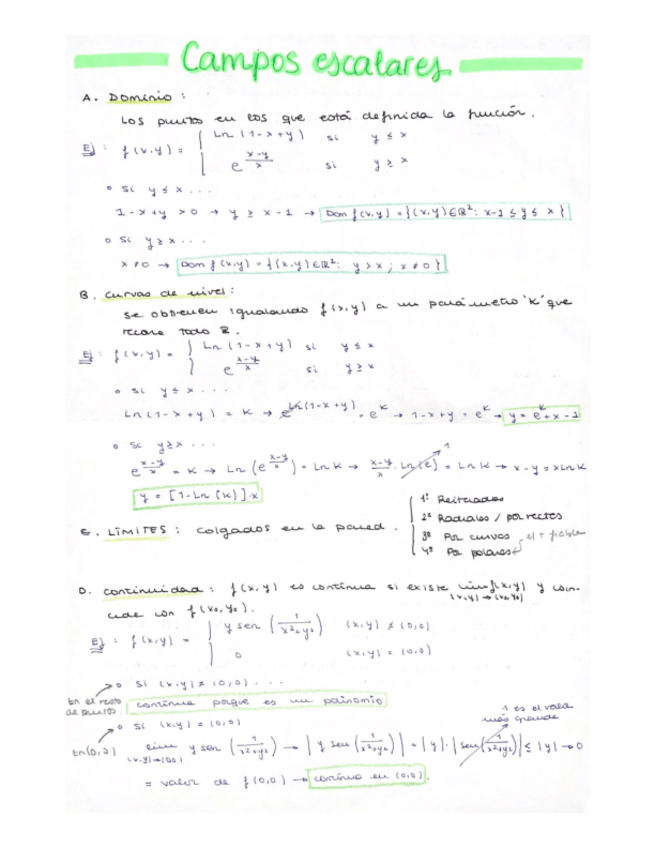 Campos escalares
A. Dominio:
Los puntos en los que está definida la función.
Ej: f(x,y) = { Ln(1-x+y) si y ≤ x
e^((x-y)/x) si y ≥ x
Si y ≤ x ...
1-x+y > 0 → y ≥ x-1 → Dom f(x,y) = {(x,y)∈ℝ²: x-1 ≤ y ≤ x}
Si y ≥ x ...
x ≠ 0 → Dom f(x,y) = {(x,y)∈ℝ²: y > x; x ≠ 0}
B. Curvas de nivel:
Se obtienen igualando f(x,y) a un parámetro 'K' que
recorre todo ℝ.
Ej: f(x,y) = { Ln(1-x+y) si y ≤ x
e^((x-y)/x) si y ≥ x
Si y ≤ x ...
Ln(1-x+y) = K → e^(Ln(1-x+y)) = e^K → 1-x+y = e^K → y = e^K + x - 1
Si y ≥ x ...
e^((x-y)/x) = K → Ln(e^((x-y)/x)) = Ln K → (x-y)/x · Ln(e) = Ln K → x-y = x Ln K
1
y = [1-Ln(K)]·x
1º Reiterados
2º Radiales / por rectas
E. LÍMITES: colgados en la pared.
3º Por curvas
el + fiable
4º Por polares
D. Continuidad: f(x,y) es continua si existe lim f(x,y) y coin-
(x,y)→(x₀,y₀)
cide con f(x₀,y₀).
Ej: f(x,y) = { y sen(1/(x²+y²)) (x,y) ≠ (0,0)
0 (x,y) = (0,0)
Si (x,y) ≠ (0,0) ...
En el resto
de puntos.
continua porque es un polinomio
1 es el valor
más grande
Si (x,y) = (0,0)
En (0,0)
lim y sen(1/(x²+y²)) → |y sen(1/(x²+y²))| = |y|·|sen(1/(x²+y²))| ≤ |y| → 0
(x,y)→(0,0)
= valor de f(0,0) → continua en (0,0).